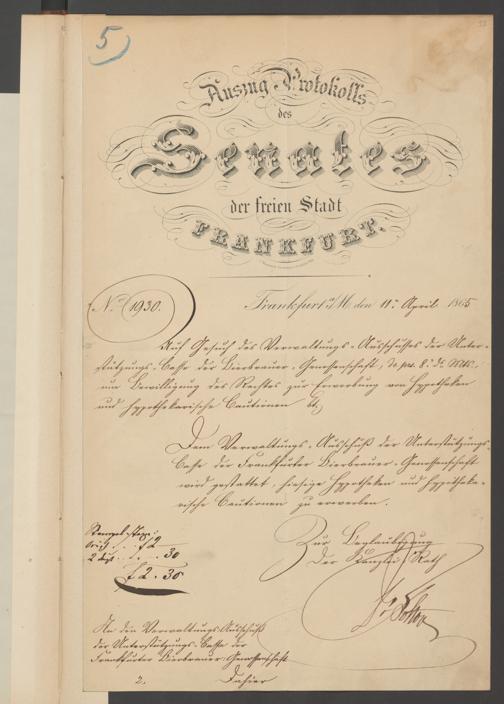 5
Auszug Protokolls
des
Senates
der freien Stadt
FRANKFURT.
No. 1930.
Frankfurt a/M. den 11n. April 1865
Auf Gesuch des Verwaltungs-Ausschusses der Unter-
stützungs-Casse der Bierbrauer-Genossenschaft,
um Bewilligung des Rechtes zur Erwerbung von Hypotheken
und hypothekarische Cautionen
Dem Verwaltungs-Ausschuß der Unterstützungs-
Casse der Frankfurter Bierbrauer-Genossenschaft
wird gestattet, hiesige Hypotheken und hypotheka-
rische Cautionen zu erwerben.
Zur Beglaubigung
Der Kanzlei-Rath
Stempel
f 2
30
f 2. 30
An den Verwaltungs-Ausschuß
der Unterstützungs-Casse der
Frankfurter Bierbrauer-Genossenschaft
2. Dahier